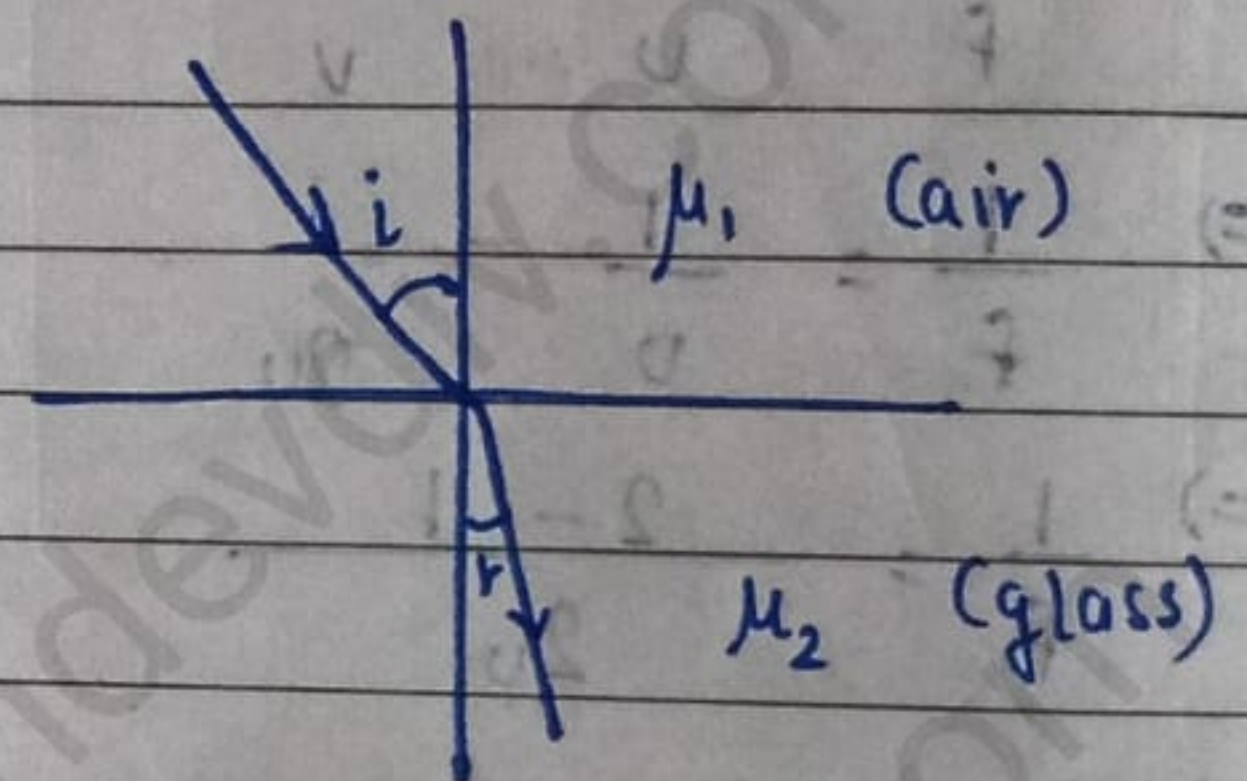 i
μ₁ (air)
r
μ₂ (glass)